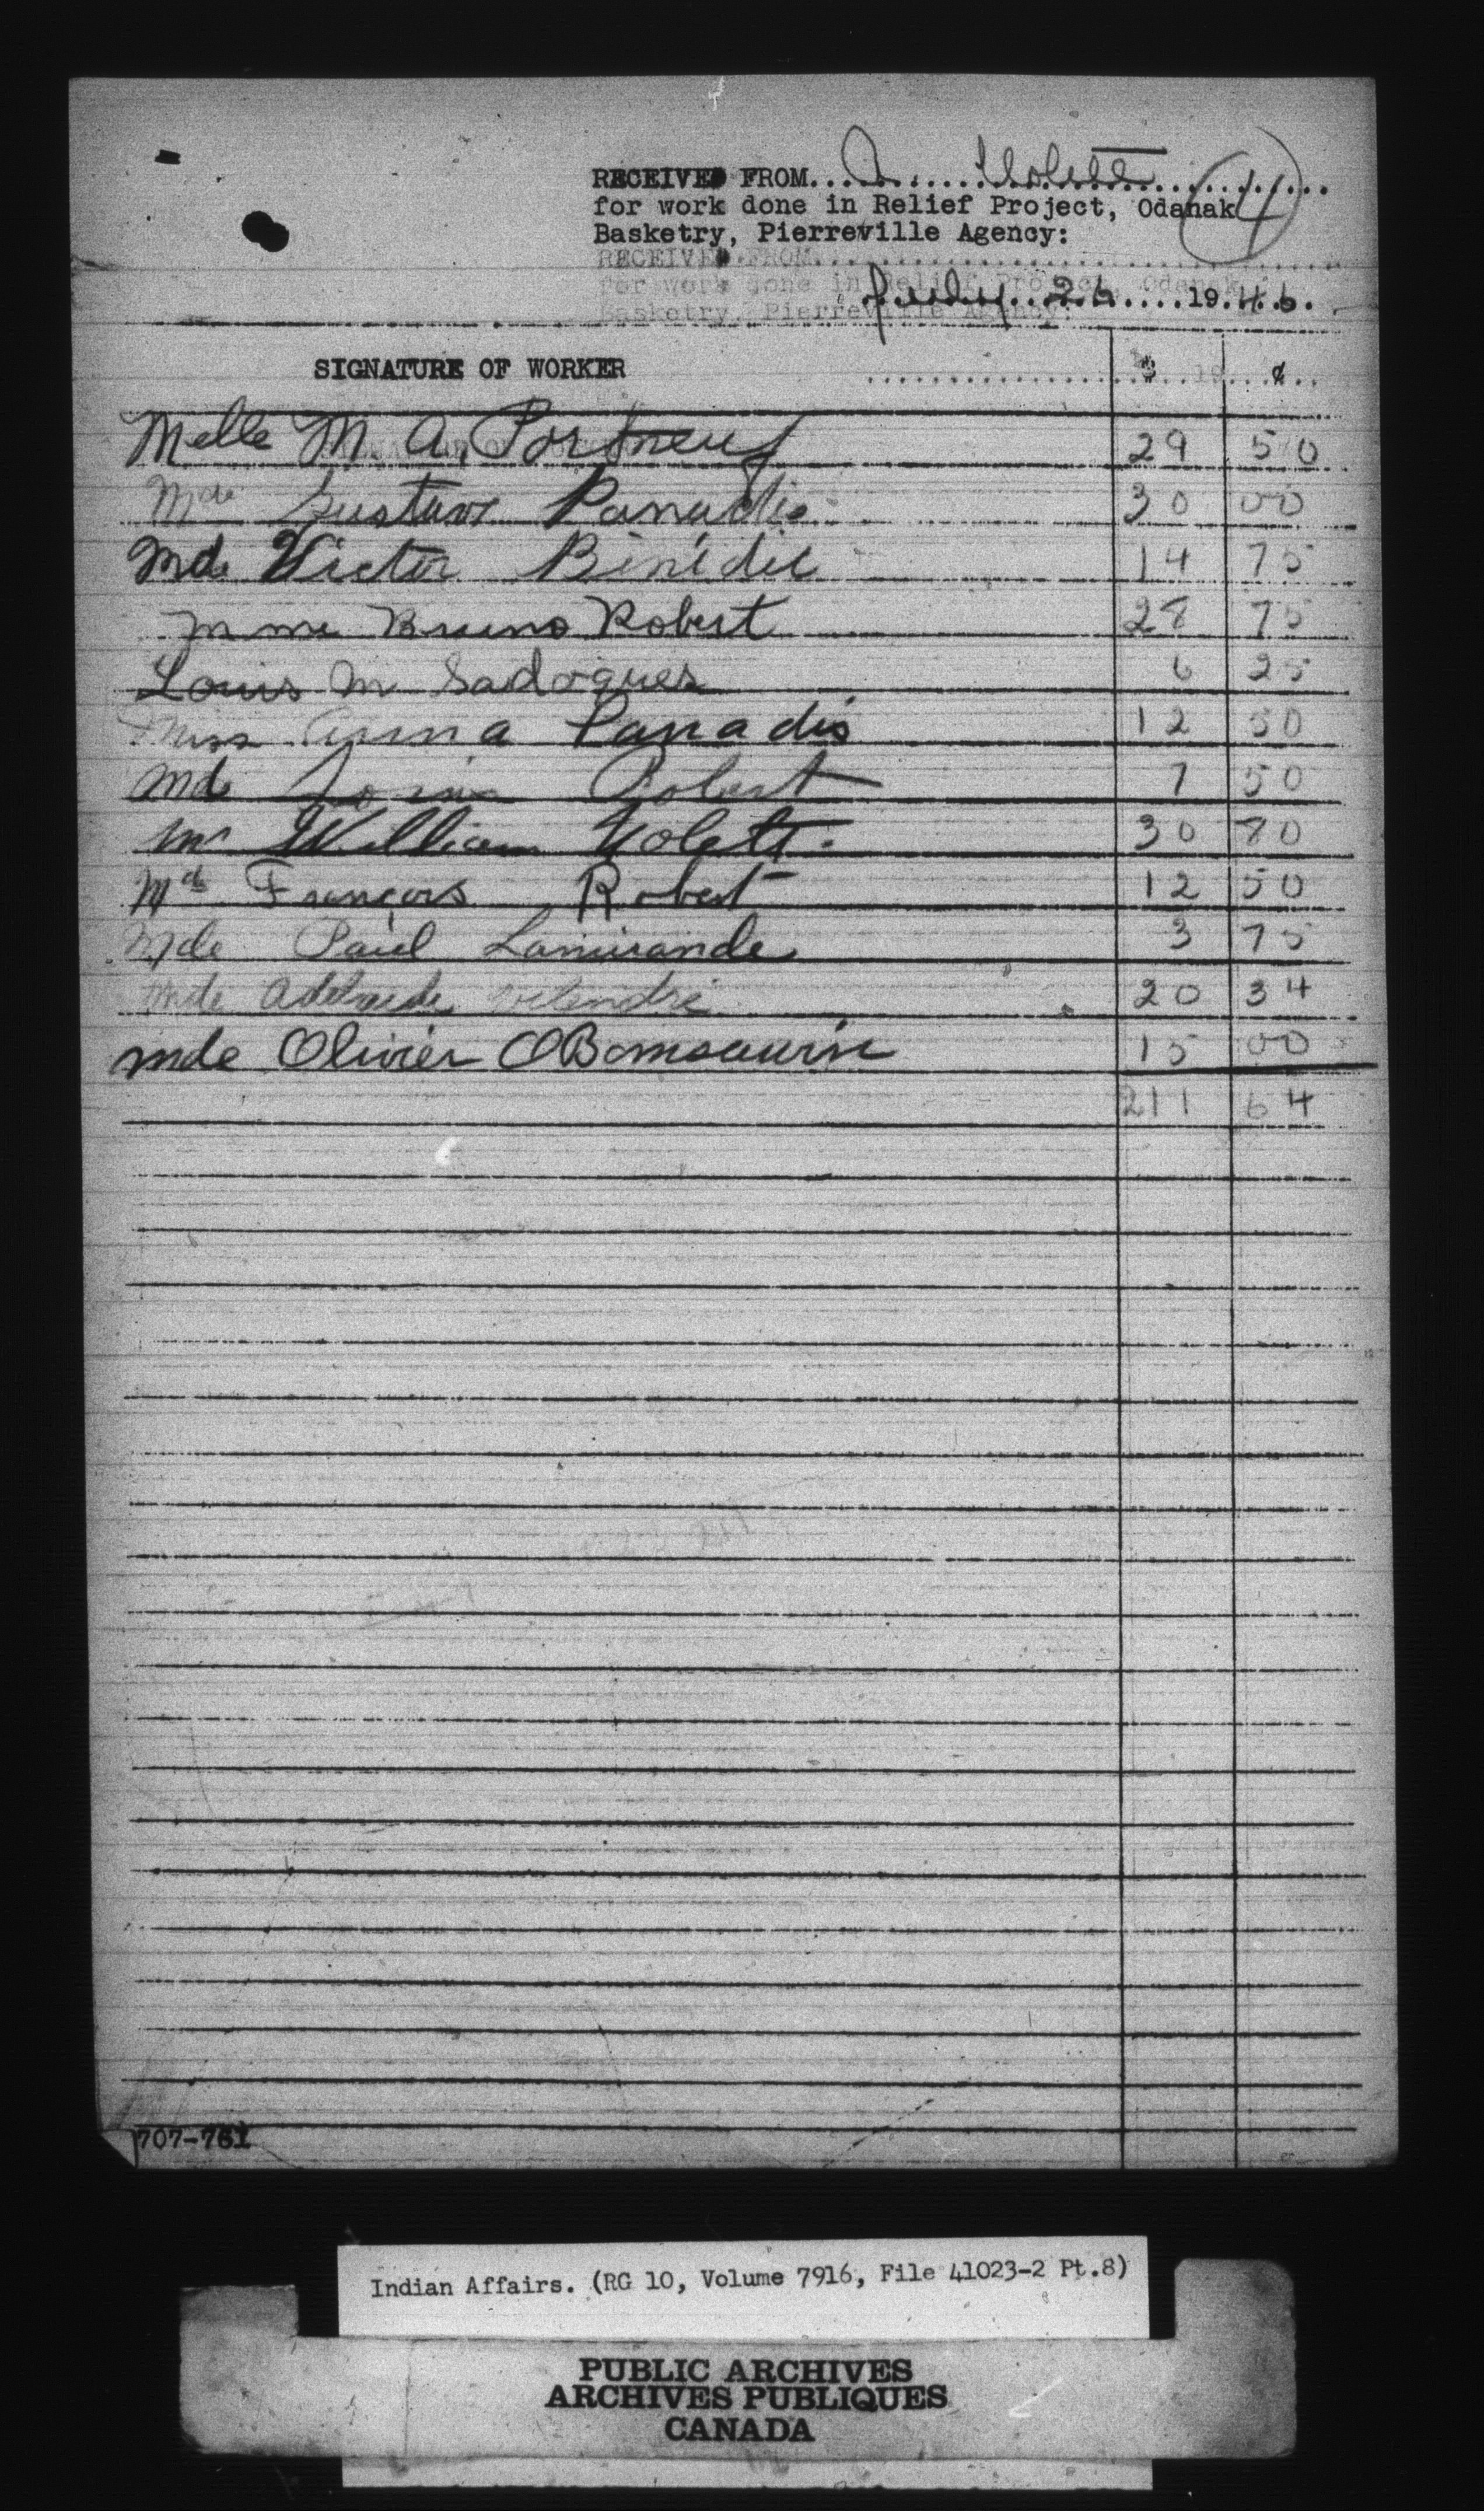 RECEIVED FROM.... Nolett
for work done in Relief Project, Odanak 4
Basketry, Pierreville Agency:
RECEIVED FROM
for work done in Relief Project, Odanak
Basketry, Pierreville Agency:
July 26 1946.
SIGNATURE OF WORKER $ ¢
Melle M. A. Portneuf 29 50
Mde Gustave Panadis 30 00
Mde Victor Bénédic 14 75
Mme Bruno Robert 28 75
Louis M Sadoques 6 25
Miss Anna Panadis 12 50
Mde Robert 7 50
Mr William Nolett. 30 80
Md François Robert 12 50
Mde Paul Lamirande 3 75
Mde Adelaide 20 34
Mde Olivier OBomsawin 15 00
211 64
707-761
Indian Affairs. (RG 10, Volume 7916, File 41023-2 Pt.8)
PUBLIC ARCHIVES
ARCHIVES PUBLIQUES
CANADA